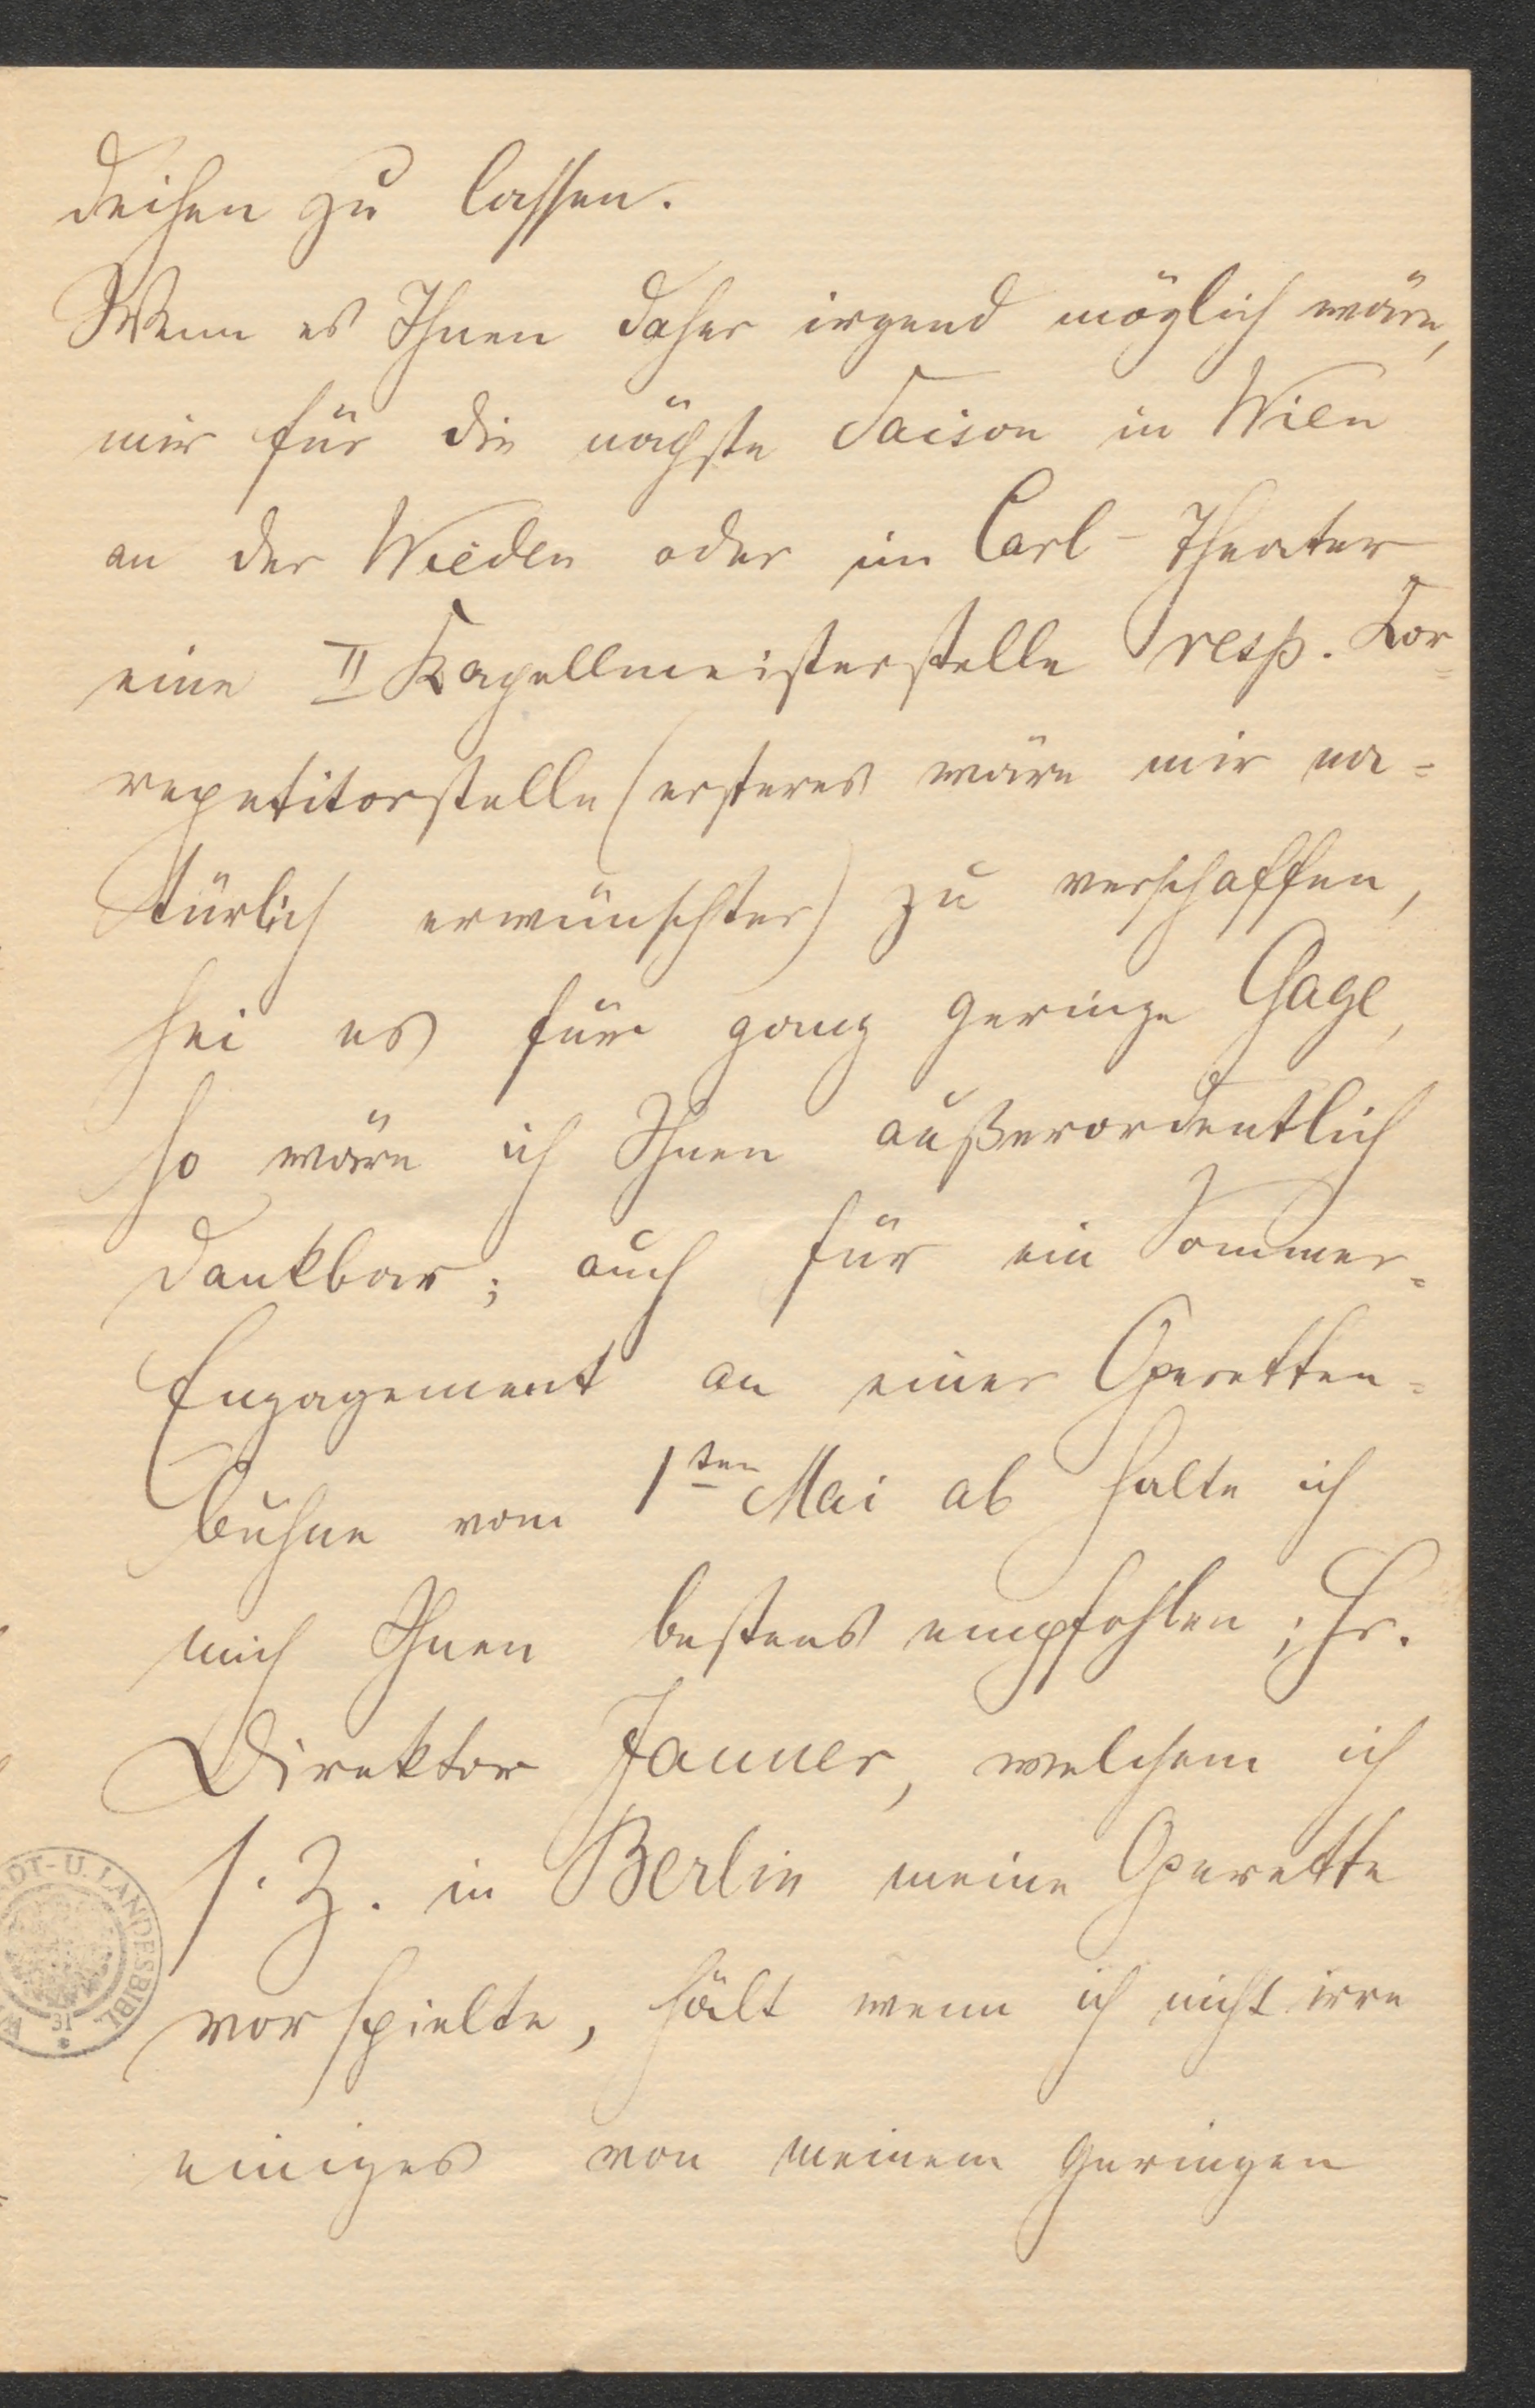 deihen zu lassen.
Wenn es Ihnen daher irgend möglich wäre,
mir für die nächste Saison in Wien
an der Wieden oder im Carl-Theater
eine II Kapellmeisterstelle resp. Kor=
repetitorstelle (ersteres wäre mir na=
türlich erwünschter) zu verschaffen,
sei es für ganz geringe Gage,
so wäre ich Ihnen außerordentlich
dankbar; auch für ein Sommer=
Engagement an einer Operetten=
bühne vom 1ten Mai ab halte ich
mich Ihnen bestens empfohlen; Hr.
Direktor Jauner, welchem ich
s. Z. in Berlin meine Operette
vorspielte, hält wenn ich nicht irre
einiges von meinem geringen
DT- U. LANDESBIBL.